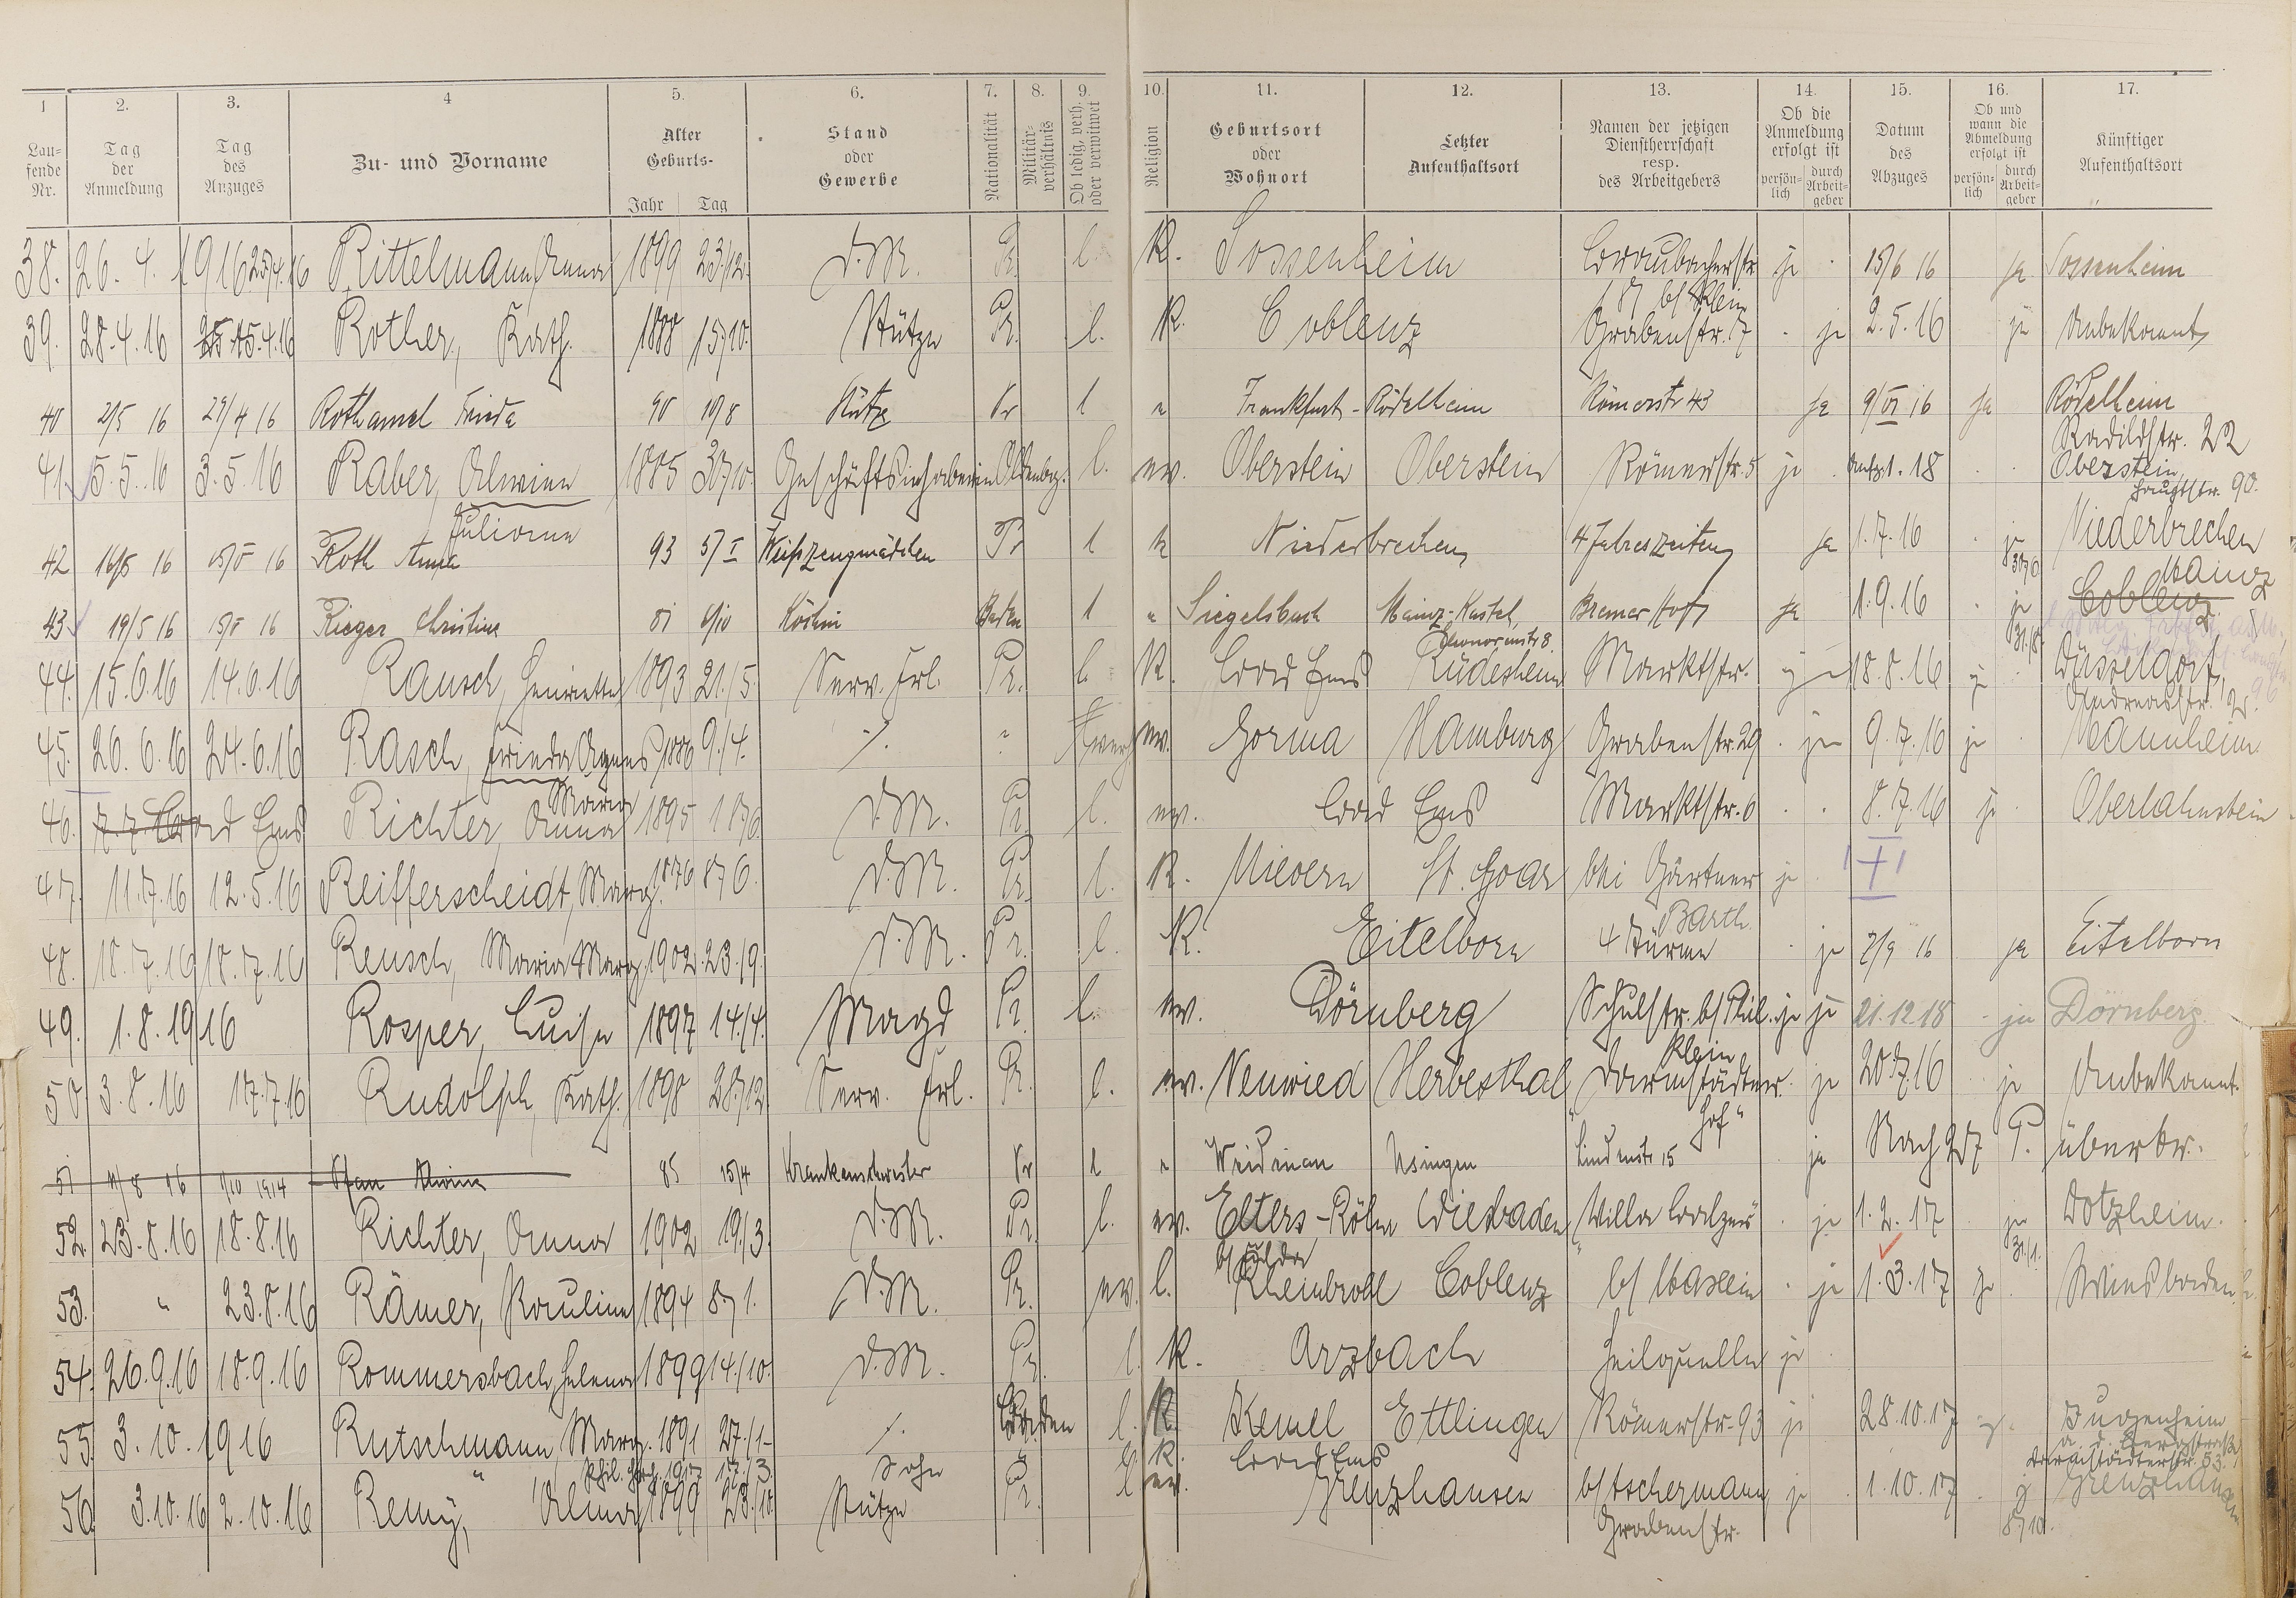 1 2. 3. 4 5. 6. 7. 8. 9. 10. 11. 12. 13. 14. 15. 16. 17.
Lau-
fende
Nr.
Tag
der
Anmeldung
Tag
des
Anzuges
Zu- und Vorname
Alter
Geburts-
Jahr Tag
Stand
oder
Gewerbe
Nationalität
Militär-
verhältnis
Ob ledig, verh.
oder verwitwet
Religion
Geburtsort
oder
Wohnort
Letzter
Aufenthaltsort
Namen der jetzigen
Dienstherrschaft
resp.
des Arbeitgebers
Ob die
Anmeldung
erfolgt ist
persön-
lich
durch
Arbeit-
geber
Datum
des
Abzuges
Ob und
wann die
Abmeldung
erfolgt ist
persön-
lich
durch
Arbeit-
geber
Künftiger
Aufenthaltsort
38. 26. 4. 1916 25/4.16 Rittelmann, Anna 1899 23/12. D.M. Pr. l. K. Sossenheim Braubacherstr. ja 15/6 16 ja Sossenheim
b/ Klein
39. 28.4.16 15.4.16 Rother, Kath. 1888 15/10. Stütze Pr. l. K. Coblenz Grabenstr. 17 ja 2.5.16 ja Unbekannt
40 2/5 16 29/4 16 Rothamel Frieda 90 19/8 Stütze Pr l " Frankfurt-Rödelheim Römerstr 43 ja 9/VI 16 ja Rödelheim
Radilostr. 22
41. 5.5.16 3.5.16 Raber, Alwine 1885 30/10. Geschäftsinhaberin Oldenbg. l. ev. Oberstein Oberstein Römerstr. 5 ja Anfg. 1. 18 Oberstein
Hauptstr. 90.
Juliane
42 16/5 16 15/5 16 Roth Anna 93 5/I Weißzeugmädchen Pr l k Niederbrechen 4 Jahreszeiten ja 1.7.16 ja 30/6 Niederbrechen
Mainz
43 19/5 16 15/5 16 Rieger Christine 81 6/10 Köchin Baden l " Siegelsbach Mainz-Kastel, Bremer Hof ja 1.9.16 ja 31./8 Coblenz
Eleonorenstr 8.
44. 15.6.16 14.6.16 Rausch, Henriette 1893 21./5. Serv. Frl. Pr. l. K. Bad Ems Rüdesheim Marktstr. ja 18.8.16 ja Düsseldorf,
Andreasstr. 12.
45. 26.6.16 24.6.16 Rasch, Frieda Agnes 1886 9./4. ./. ? verh ev. Gorma Hamburg Grabenstr. 29 ja 9.7.16 ja Mannheim
Maria
46. 7.7. Bad Ems Richter, Anna 1895 18/6. D.M. Pr. l. ev. Bad Ems Marktstr. 6 8.7.16 ja Oberlahnstein
47. 11.7.16 12.5.16 Reifferscheidt, Marg. 1876 8/6. D.M. Pr. l. K. Mievern St. Goar bei Gärtner ja
Barth
48. 18.7.16 18.7.16 Reusch, Maria Marg. 1902. 23./9. D.M. Pr. l. K. Eitelborn 4 Türme ja 7/9 16 ja Eitelborn
49. 1.8.1916 Rosper, Luise 1897 14./4. Magd Pr. l. ev. Dörnberg Schulstr. b/ Phil. ja ja 21.12.18 ja Dörnberg.
Klein
50 3.8.16 17.7.16 Rudolph, Kath. 1898 28/12. Serv. Frl. Pr. l. ev. Neuwied Herbesthal "Darmstädter ja 20.7.16 ja Unbekannt.
Hof"
51 11/8 16 1/10 1914 Pfau Alwine 85 15/4 Krankenschwester Pr l " Weidenau Usingen Lindenstr 15 ja Nach 257 P. übertr.
52. 23.8.16 18.8.16 Richter, Anna 1902 19./3. D.M. Pr. l. ev. Elters-Röhn Wiesbaden "Villa Balzer" ja 1.2.17 ja 31./1. Dotzheim.
b/ Fulda
53. " 23.8.16 Rämer, Pauline 1894 8/1. D.M. Pr. ev. l. Rheinbrohl Coblenz b/ Maxein ja 1.3.17 ja Wiesbaden.
54. 26.9.16 18.9.16 Rommersbach, Helena 1899 14./10. D.M. Pr. l. K. Arzbach Heilquelle ja
55. 3.10.1916 Rutschmann, Marg. 1891 27./1. ./. Baden l. K. Kemel Ettlingen Römerstr. 93 ja 28.10.17 ja. Jugenheim
a. d. Bergstraße
Darmstädterstr. 53.
" Phil. Hch. 1917 17./3. Sohn " l. K. Bad Ems
56. 3.10.16 2.10.16 Remy, Alma 1899 23./10. Stütze Pr. l. ev. Grenzhausen b/ Aschermann ja 1.10.17 ja 8/10. Grenzhausen
Grabenstr.